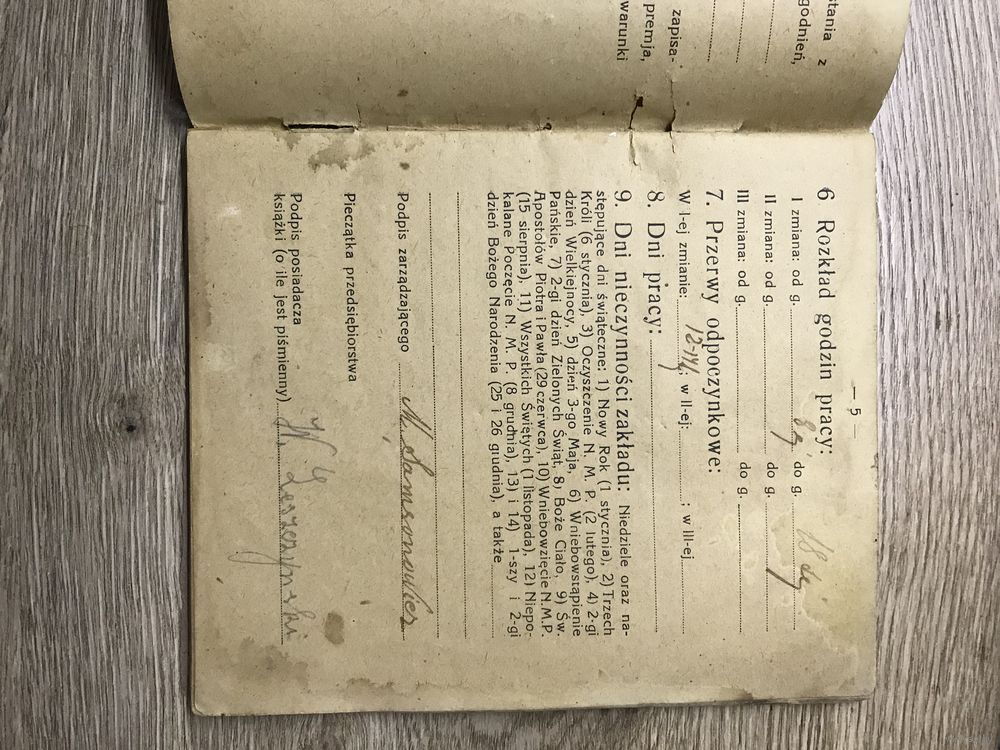 stania z
godnień,
zapisa-
premja,
warunki
— 5 —
6 Rozkład godzin pracy:
I zmiana: od g. 8 g. do g. 18-ej
II zmiana: od g. do g.
III zmiana: od g. do g.
7. Przerwy odpoczynkowe:
W I-ej zmianie: 12-14, w II-ej: ; w III-ej
8. Dni pracy:
9. Dni nieczynności zakładu: Niedziele oraz na-
stępujące dni świąteczne: 1) Nowy Rok (1 stycznia), 2) Trzech
Króli (6 stycznia), 3) Oczyszczenie N. M. P. (2 lutego), 4) 2-gi
dzień Wielkiejnocy, 5) dzień 3-go Maja, 6) Wniebowstąpienie
Pańskie, 7) 2-gi dzień Zielonych Świąt, 8) Boże Ciało, 9) Św.
Apostołów Piotra i Pawła (29 czerwca), 10) Wniebowzięcie N.M.P.
(15 sierpnia), 11) Wszystkich Świętych (1 listopada), 12) Niepo-
kalane Poczęcie N. M. P. (8 grudnia), 13) i 14) 1-szy i 2-gi
dzień Bożego Narodzenia (25 i 26 grudnia), a także
Podpis zarządzającego M. Samsonowicz
Pieczątka przedsiębiorstwa
Podpis posiadacza
książki (o ile jest piśmienny) Leszczyński